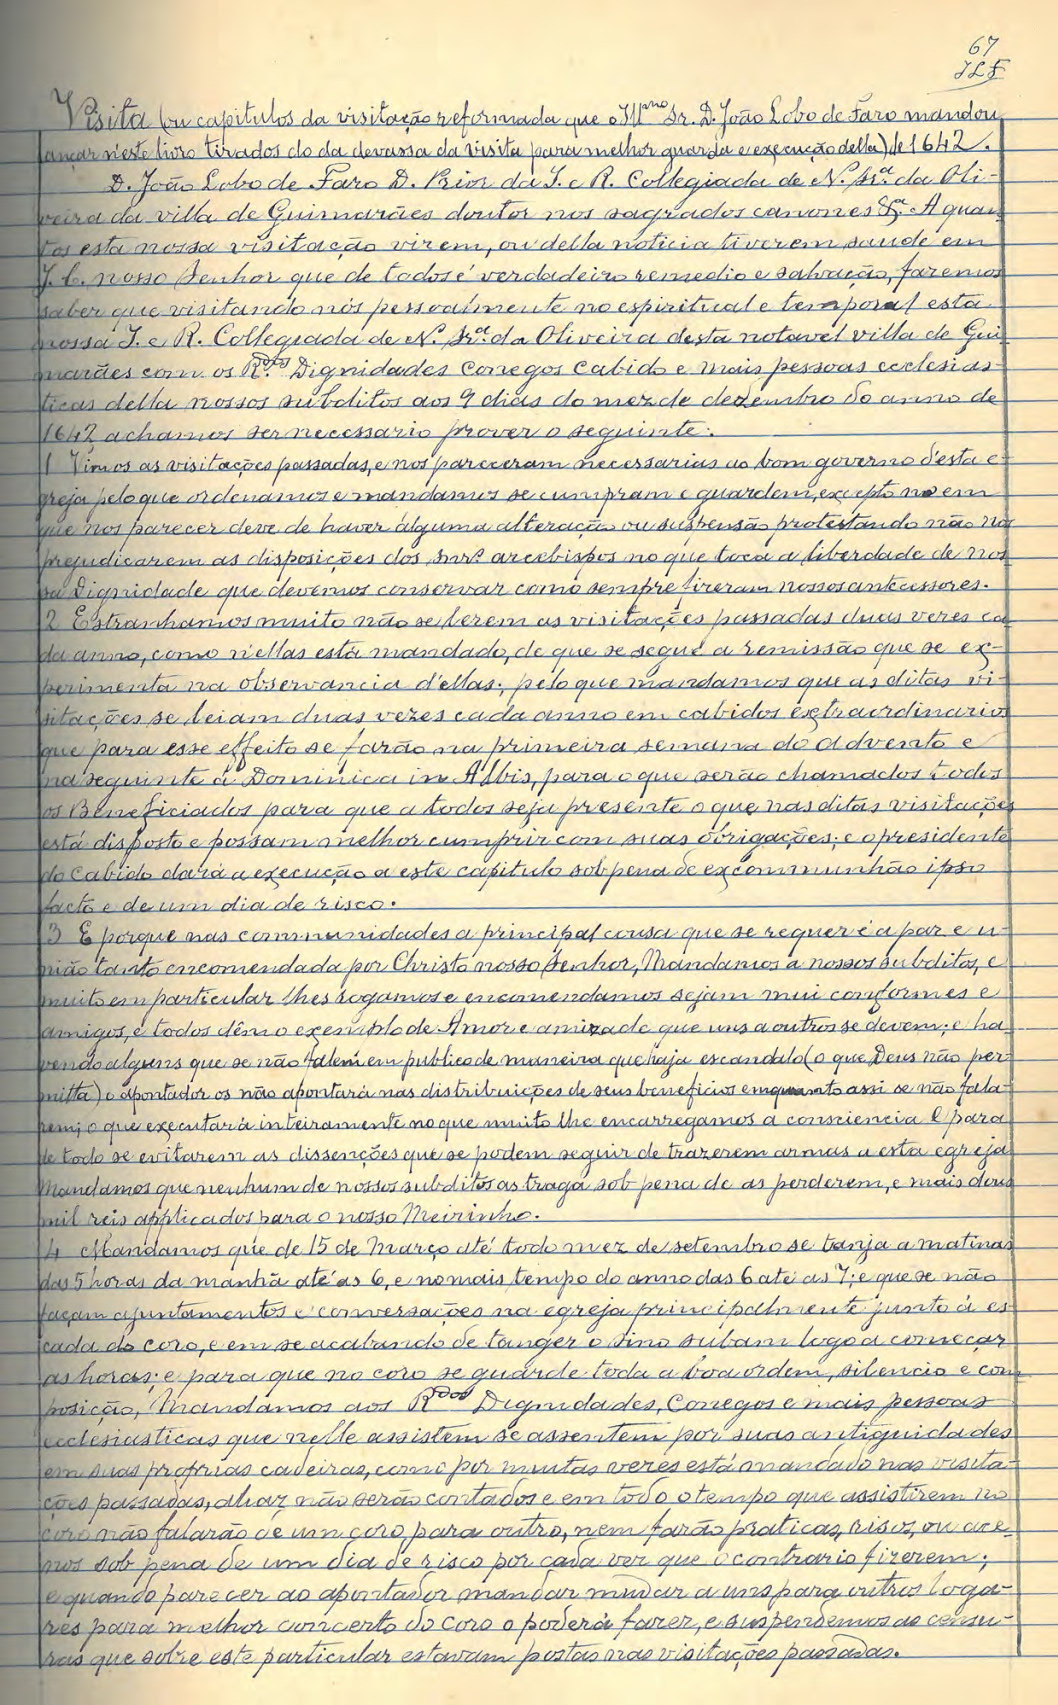 67
JLF
Visita (ou capitulos da visitação reformada que o Illmo Sr. D. João Lobo de Faro mandou
lançar n'este livro tirados do da devassa da visita para melhor guarda e execução della) de 1642.
D. João Lobo de Faro D. Prior da I. e R. Collegiada de N. Sra. da Oli-
veira da villa de Guimarães doutor nos sagrados canones &a. A quan-
tos esta nossa visitação virem, ou della noticia tiverem saude em
J. C. nosso Senhor que de todos é verdadeiro remedio e salvação, faremos
saber que visitando nós pessoalmente no espiritual e temporal esta
nossa I. e R. Collegiada de N. Sra. da Oliveira desta notavel villa de Gui-
marães com os Rdos Dignidades Conegos Cabido e mais pessoas ecclesias-
ticas della nossos subditos aos 9 dias do mez de dezembro do anno de
1642 achamos ser necessario prover o seguinte.
1 Vimos as visitações passadas, e nos pareceram necessarias ao bom governo d'esta e-
greja pelo que ordenamos e mandamos se cumpram e guardem, excepto no em
que nos parecer deve de haver alguma alteração ou suspensão protestando não nos
prejudicarem as disposições dos snrs. arcebispos no que toca a liberdade de nos-
sa Dignidade que devemos conservar como sempre fizeram nossos antecessores.
2 Estranhamos muito não se lerem as visitações passadas duas vezes ca-
da anno, como n'ellas está mandado, de que se segue a remissão que se ex-
perimenta na observancia d'ellas; pelo que mandamos que as ditas vi-
sitações se leiam duas vezes cada anno em cabidos extraordinarios
que para esse effeito se farão na primeira semana do Advento e
na seguinte á Dominica in Albis, para o que serão chamados todos
os Beneficiados para que a todos seja presente o que nas ditas visitações
está disposto e possam melhor cumprir com suas obrigações; e o presidente
do Cabido dará a execução a este capitulo sob pena de excommunhão ipso
facto e de um dia de risco.
3 E porque nas communidades a principal cousa que se requer é a paz e u-
nião tanto encomendada por Christo nosso Senhor, Mandamos a nossos subditos, e
muito em particular lhes rogamos e encomendamos sejam mui conformes e
amigos, e todos dêm o exemplo de Amor e amizade que uns a outros se devem; e ha-
vendo alguns que se não falem em publico de maneira que haja escandalo (o que Deus não per-
mitta) o apontador os não apontará nas distribuições de seus beneficios emquanto assi se não fala-
rem; o que executará inteiramente no que muito lhe encarregamos a consciencia E para
de todo se evitarem as dissenções que se podem seguir de trazerem armas a esta egreja
Mandamos que nenhum de nossos subditos as traga sob pena de as perderem, e mais dous
mil reis applicados para o nosso Meirinho.
4 Mandamos que de 15 de Março até todo mez de setembro se tanja a matinas
das 5 horas da manhã até as 6, e no mais tempo do anno das 6 até as 7; e que se não
façam ajuntamentos e conversações na egreja principalmente junto á es-
cada do coro, e em se acabando de tanger o sino subam logo a começar
as horas; e para que no coro se guarde toda a boa ordem, silencio e com-
posição, Mandamos aos Rdos Dignidades, Conegos e mais pessoas
ecclesiasticas que nelle assistem se assentem por suas antiguidades
em suas proprias cadeiras, como por muitas vezes está mandado nas visita-
ções passadas, aliaz não serão contados e em todo o tempo que assistirem no
coro não falarão de um coro para outro, nem farão praticas, risos, ou ace-
nos sob pena de um dia de risco por cada vez que o contrario fizerem;
e quando parecer ao apontador mandar mudar a uns para outros loga-
res para melhor concerto do coro o poderá fazer, e suspendemos as censu-
ras que sobre este particular estavam postas nas visitações passadas.